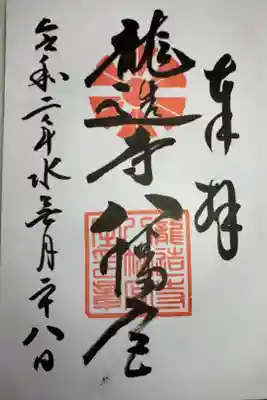 奉拝
龍造寺八幡宮
令和二年水無月二十八日
龍造寺
八幡宮